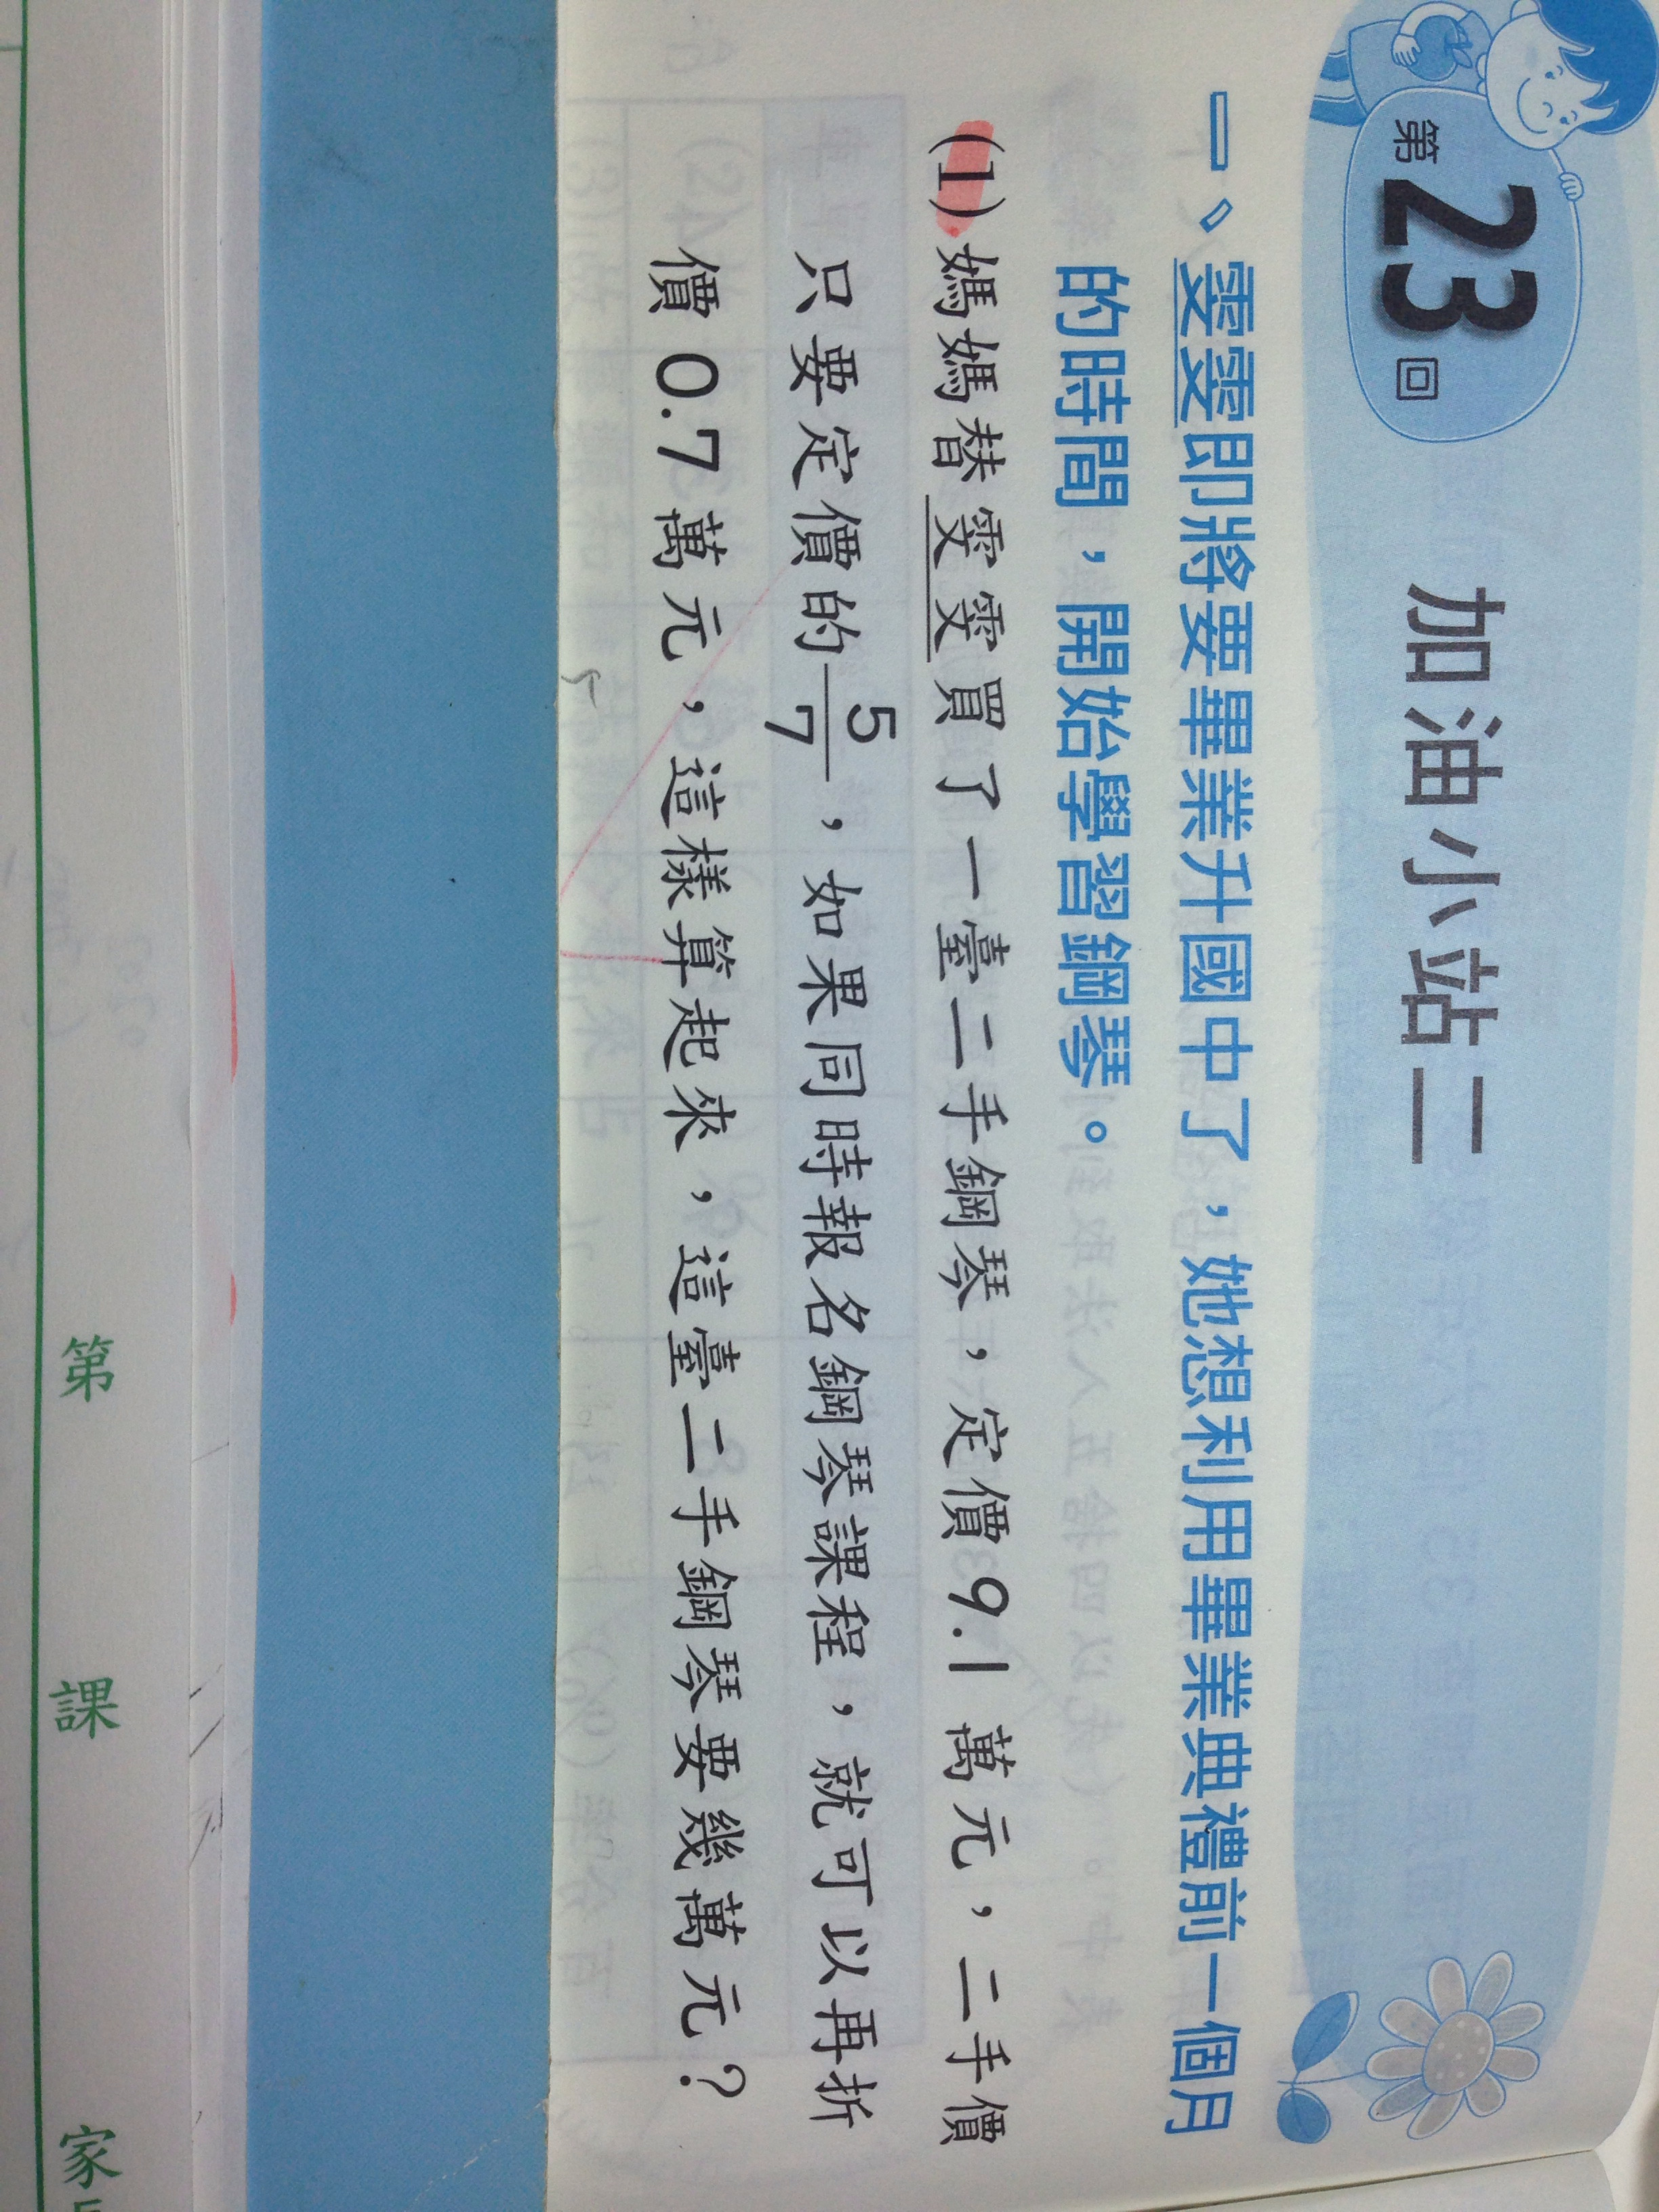 第23回
加油小站二
一、雯雯即將要畢業升國中了，她想利用畢業典禮前一個月
的時間，開始學習鋼琴。
(1) 媽媽替雯雯買了一臺二手鋼琴，定價9.1萬元，二手價
只要定價的5/7，如果同時報名鋼琴課程，就可以再折
價0.7萬元，這樣算起來，這臺二手鋼琴要幾萬元？
第 課 家